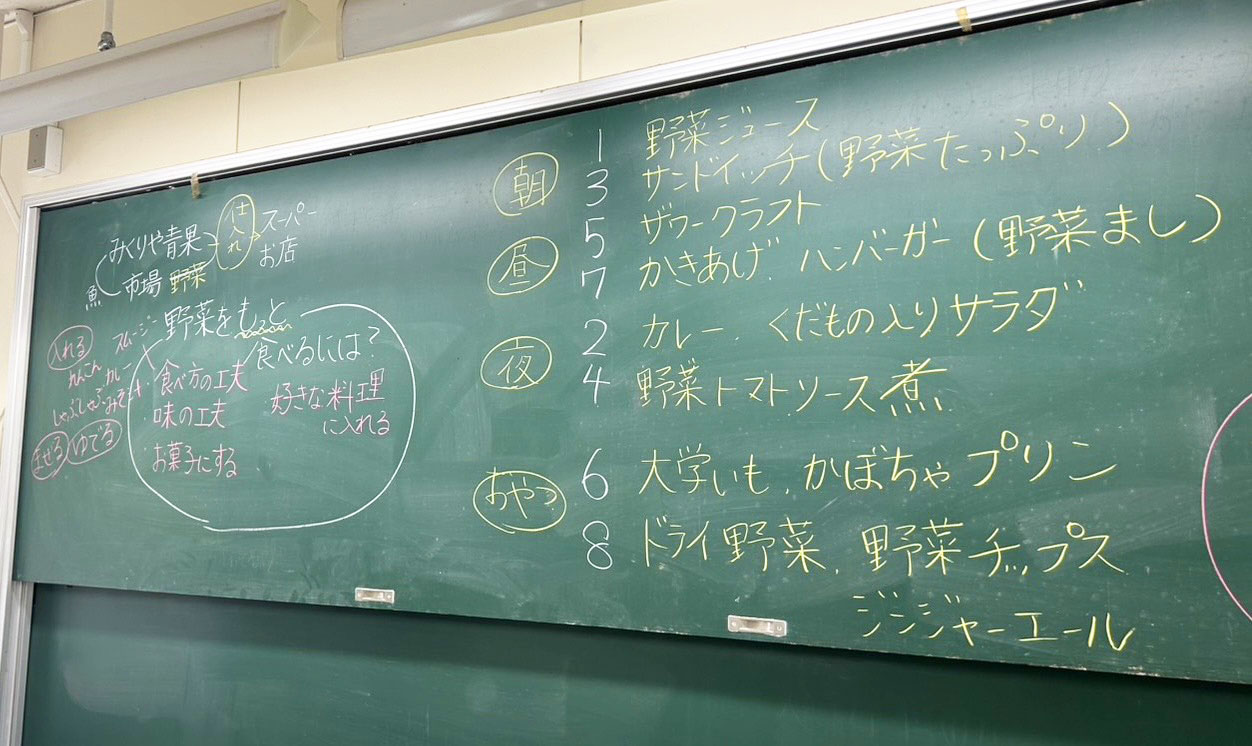 みくりや青果
仕入れ
スーパー
お店
魚 市場 野菜
野菜をもっと
食べるには？
スムージー
・食べ方の工夫
・味の工夫
・お菓子にする
好きな料理
に入れる
入れる
れんこん カレー
しゃぶしゃぶ・みそ汁
まぜる ゆでる
朝
1 野菜ジュース
3 サンドイッチ(野菜たっぷり)
昼
5 ザワークラフト
7 かきあげ ハンバーガー(野菜まし)
夜
2 カレー くだもの入りサラダ
4 野菜トマトソース煮
おやつ
6 大学いも、かぼちゃプリン
8 ドライ野菜、野菜チップス
ジンジャーエール